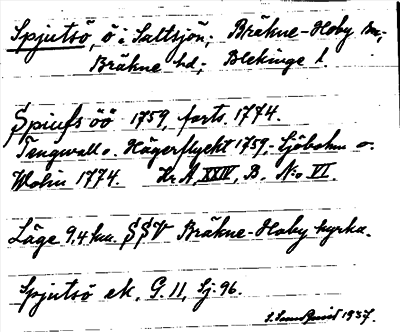 Spjutsö, ö i Saltsjön; Bräkne-Hoby sn;
Bräkne hd; Blekinge l.
Spiufs öö 1759, forts. 1774.
Tengwall o. Hägerflycht 1759,- Sjöbohm o.
Wolin 1774. Kr. A, XXIV, B. No VI.
Läge 9,4 km. SSV Bräkne-Hoby kyrka.
Spjutsö ek. G. 11, Sj. 96.
1937.